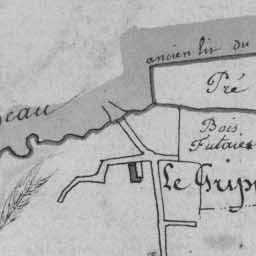 ancien lit du
Pré
eau
Bois
Futaies
Le Grip